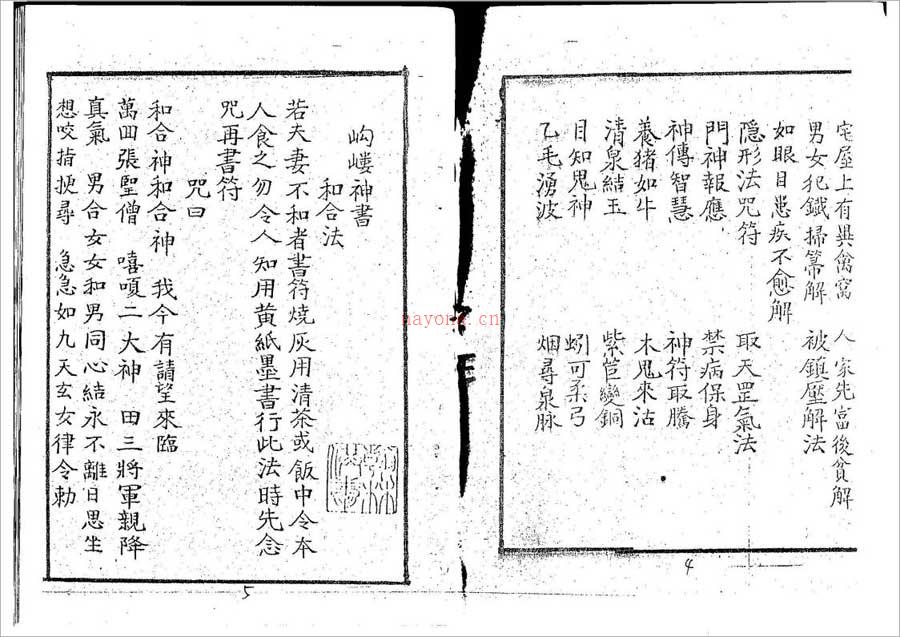 宅屋上有異禽窩 人家先富後貧解
男女犯鐵掃箒解 被鎮壓解法
如眼目患疾不愈解
隱形法咒符 取天罡氣法
門神報應 禁病保身
神傳智慧 神符取騰
養猪如牛 木鬼來沽
清泉結玉 紫笆變銅
目知鬼神 蚓可柔弓
乙毛湧波 烟尋泉脉
4
岣嶁神書
和合法
若夫妻不和者書符燒灰用清茶或飯中令本
人食之勿令人知用黄紙墨書行此法時先念
咒再書符
咒曰
和合神和合神 我今有請望來臨
萬回張聖僧 嘻嗄二大神 田三將軍親降
真氣 男合女女和男同心結永不離日思坐
想咬指挭尋 急急如九天玄女律令勅
5
nayona.cn